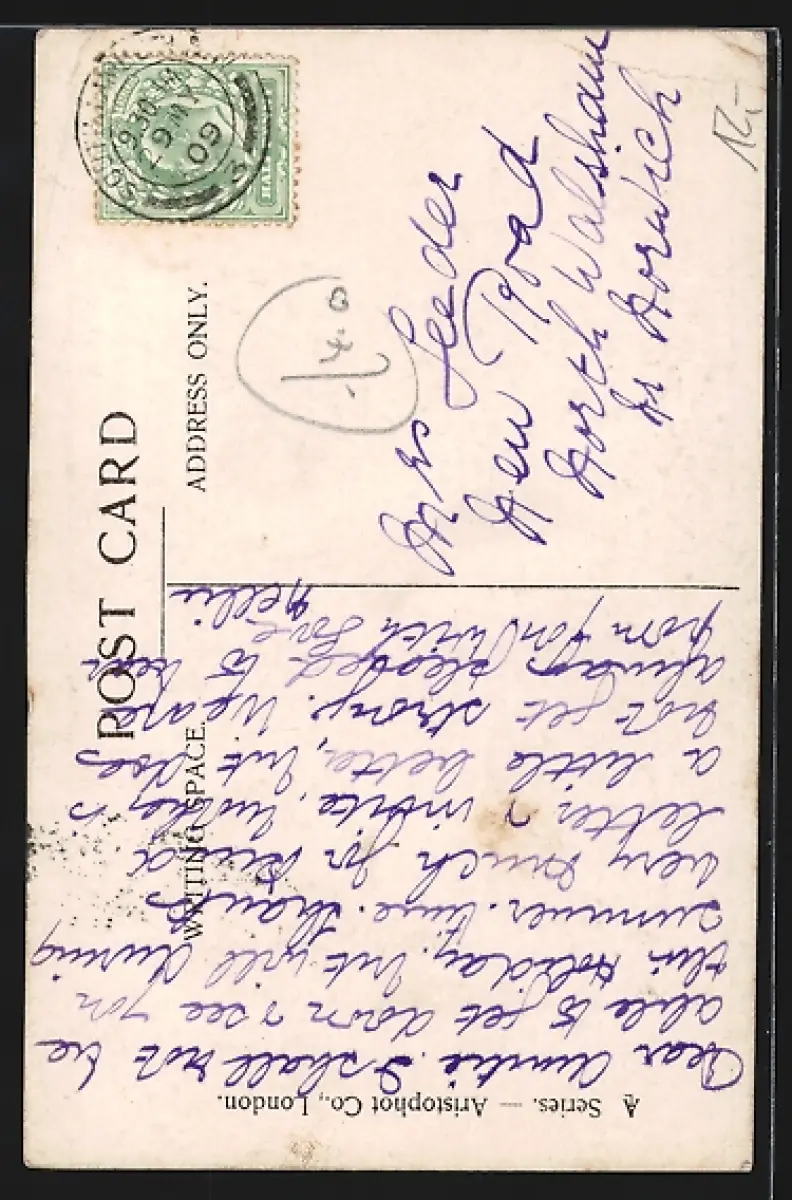 POST CARD
WRITING SPACE.
ADDRESS ONLY.
9.30 AM
MY 9
09
3
HALF
Mrs Leeder
New Road
North Walsham
Nr Norwich
1/4.0
12,-
Dear Auntie. I shall not be
able to get down & see you
this Holiday. but will during
summer. time. Thanks
very much for kind
letter & invite, Mother is
a little better, but does
not get strong. We are
always pleased to hear
from you with Love
Nellie
A Series. — Aristophot Co., London.